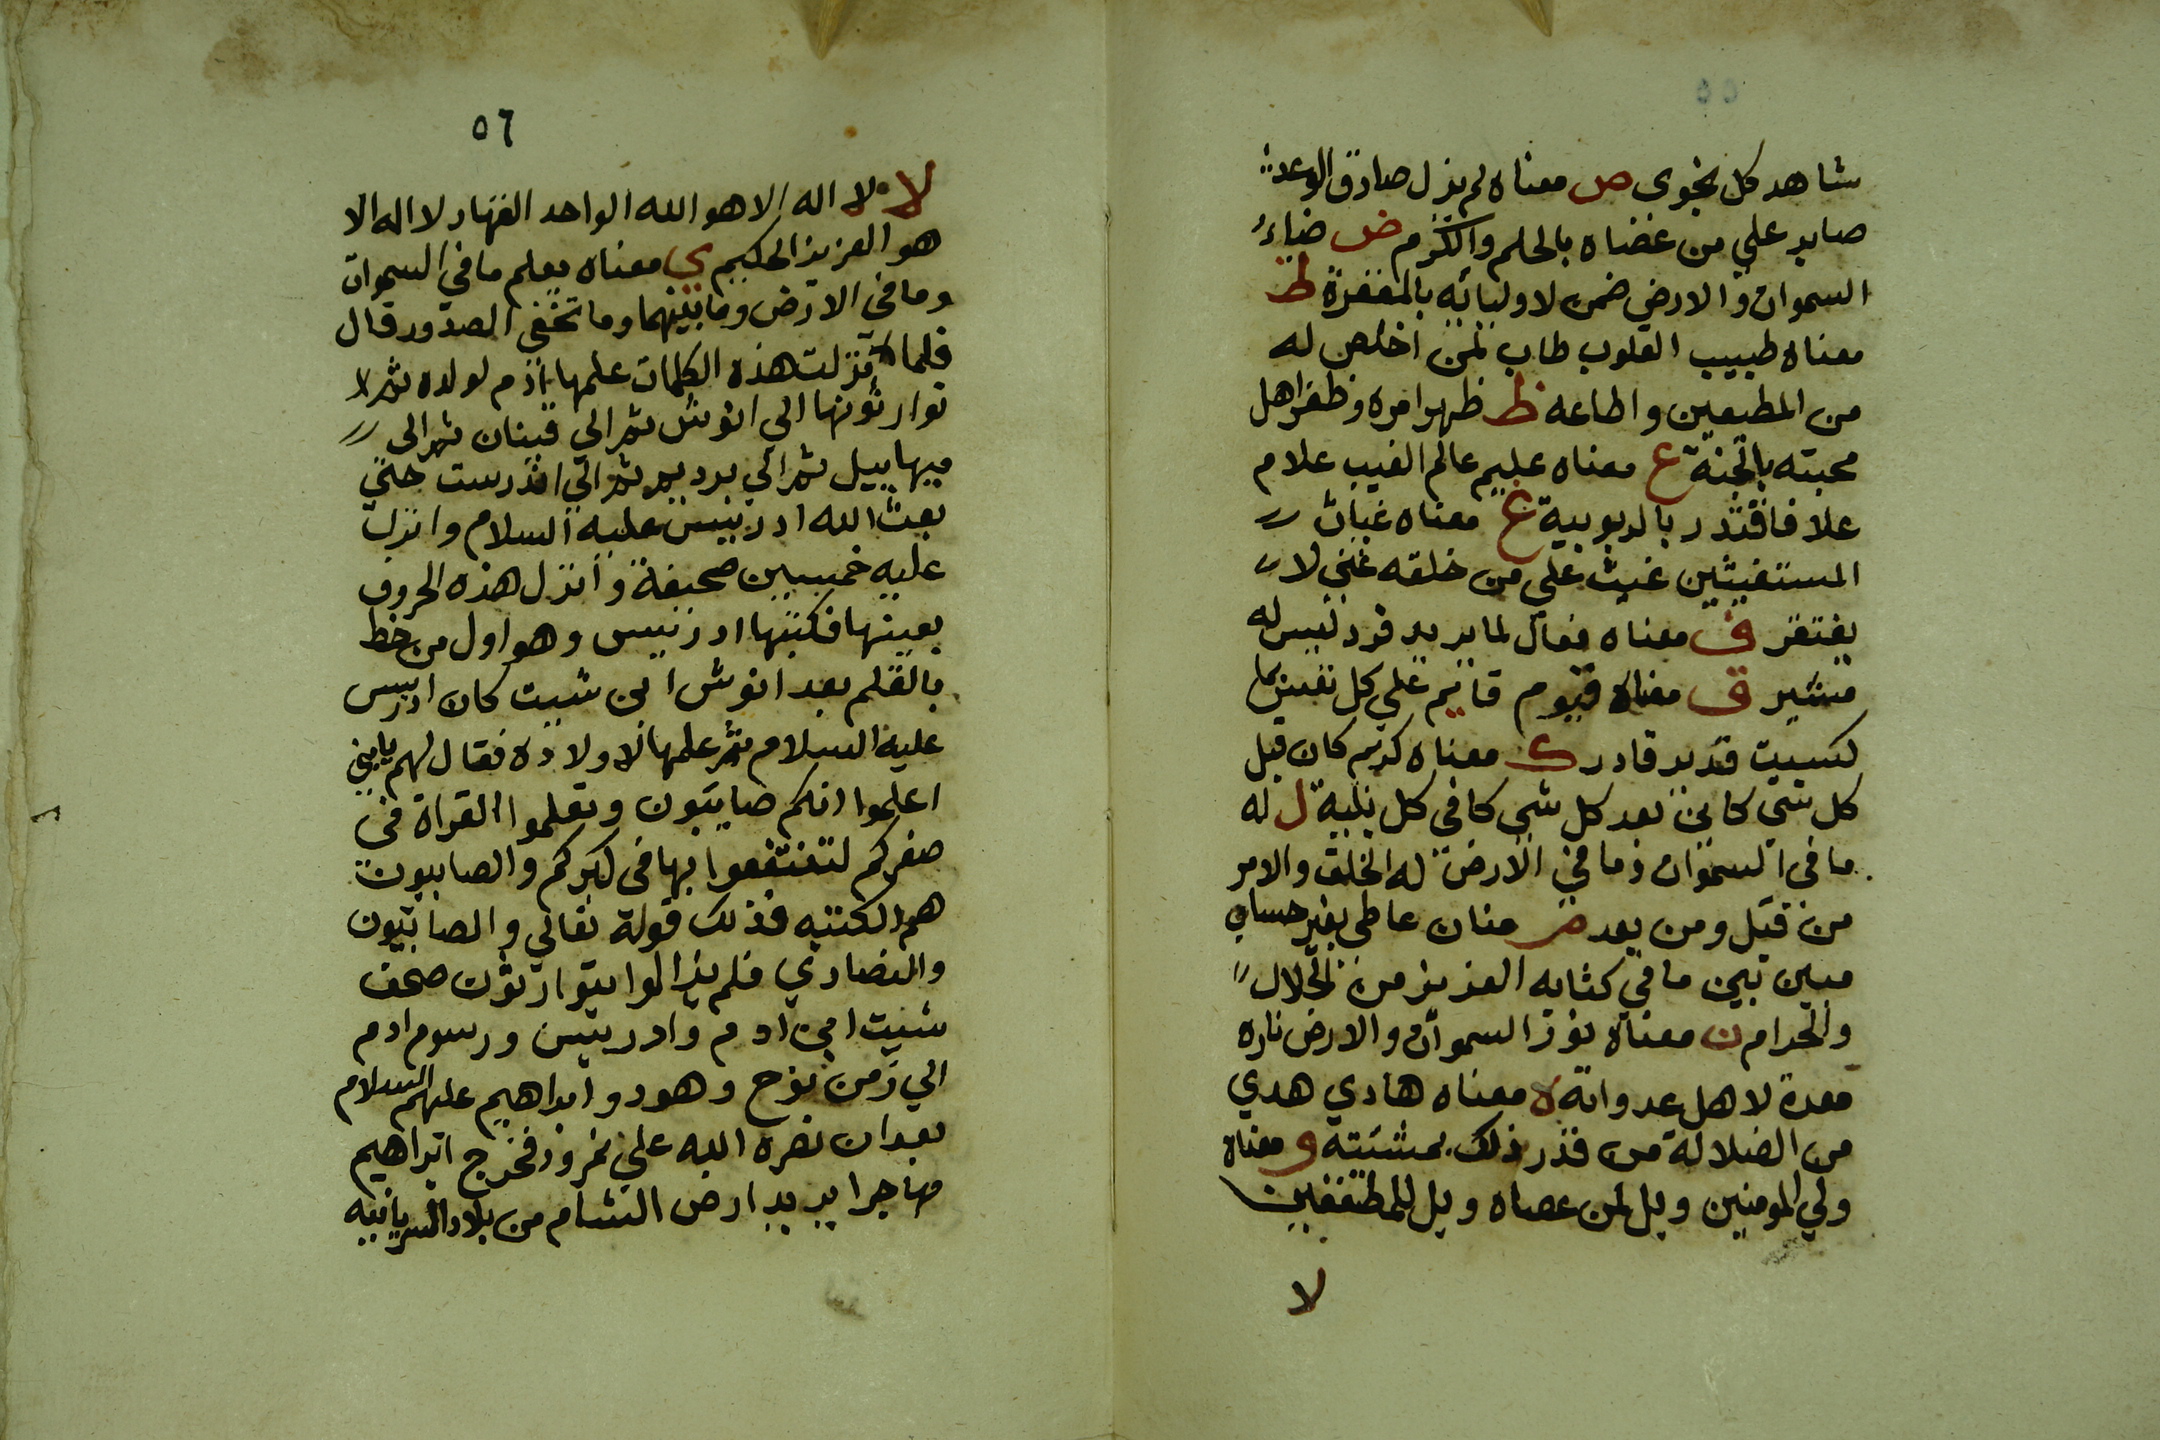 ٥٥
شاهد كل نجوى ص معناه لم يزل صادق الوعد
صابر علي من عضاه بالحلم والكرم ض ضياء
السموات والارض ضمن لاوليائه بالمغفرة ط
معناه طبيب القلوب طاب لمن اخلص له
من المطيعين واطاعه ظ ظهر امره وظفر اهل
محبته بالجنة ع معناه عليم عالم الغيب علام
علا فاقتدر بالربوبية غ معناه غياث
المستغيثين غيث علي من خلقه غني لا
يفتقر ف معناه فعال لما يريد فرد ليس له
مشير ق معناه قيوم قائيم علي كل نفس بما
كسبت قدير قادر ك معناه كريم كان قبل
كل شي كاين بعد كل شي كافي كل بلية ل له
ما في السموات وما في الارض له الخلق والامر
من قبل ومن بعد م منان عاطي بغير حساب
مبين بين ما في كتابه العزيز من الحلال
والحرام ن معناه نور السموات والارض ناره
معدة لاهل عدوانه ه معناه هادي هدي
من الضلالة من قدر ذلك بمشئته و معناه
ولي المومنين ويل لمن عصاه ويل للمطففين
لا
٥٦
لا لا اله الا هو الله الواحد القهار لا اله الا
هو العزيز الحكيم ي معناه يعلم ما في السموات
وما في الارض وما بينهما وما تخفي الصدور قال
فلما نزلت هذه الكلمات علمها ادم لولده ثم لا
توارثونها الي انوش ثم الي قينان ثم الى
ميهاييل ثم الي برد ثم الي اندرست حتي
بعث الله ادريس عليه السلام وانزل
عليه خمسين صحيفة وانزل هذه الحروف
بعينها فكتبها ادريس وهو اول من خط
بالقلم بعد انوش ابن شيت كان ادريس
عليه السلام ثم علمها لاولاده فقال لهم يابني
اعلموا انكم صايبون وتعلموا القراة في
صغركم لتنتفعوا بها في كبركم والصابيون
هم الكتبه فذلك قولة تعالي والصابيون
والنصاري فلم يزالوا يتوارثون صحف
شيت ابن ادم وادريس ورسوم ادم
الي زمن نوح وهود وابراهيم عليهم السلام
بعد ان نصره الله علي نمرود فخرج ابراهيم
مهاجرا يريد ارض الشام من بلاد السريانيه